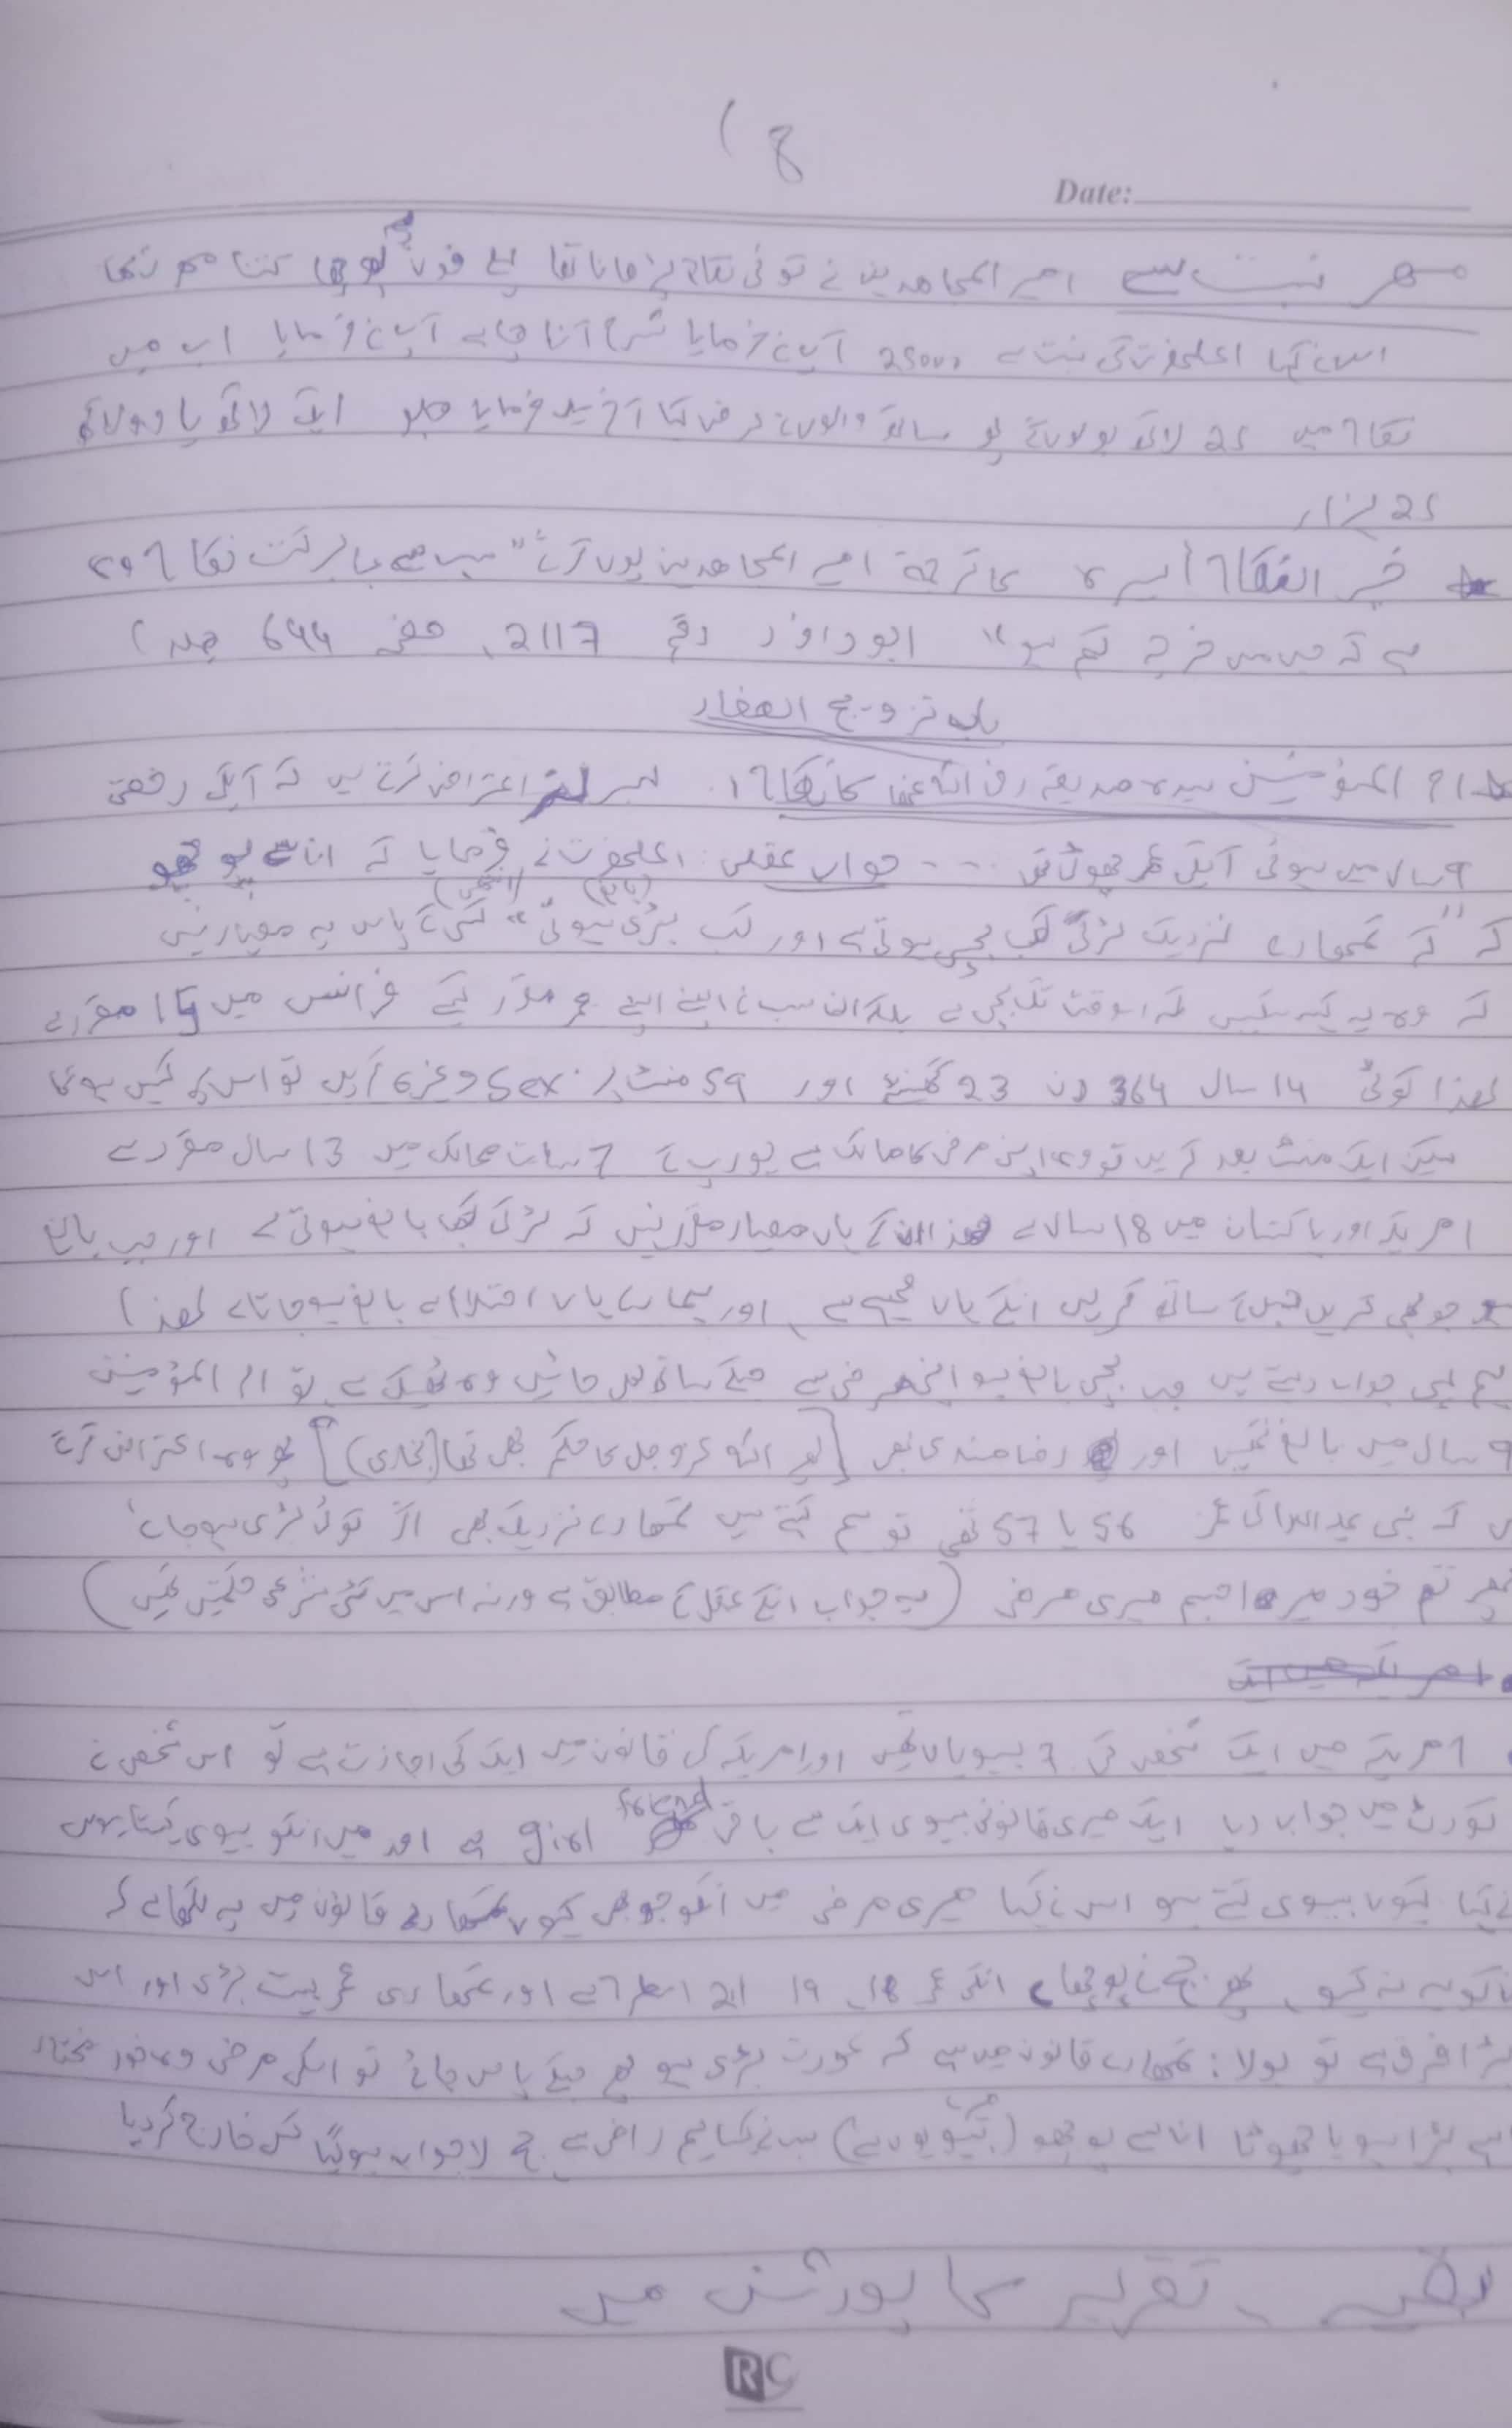 8)
Date:
مہر نسبت سے امیر المجاہدین نے کوئی نکاح پڑھانا تھا پہلے فون پوچھا کتنا مہر رکھا
اس نے کہا اعلحضرت کی نسبت سے 25000 آپ نے فرمایا شرم آنا چاہے آپ نے فرمایا اب میں
نکاح میں 25 لاکھ بولوں گا پھر ساتھ والوں نے عرض کیا آخر میں فرمایا چلو ایک لاکھ یا دو لاکھ
25 ہزار
خیر النکاح أیسرہ کا ترجمہ امیر المجاہدین یوں کرتے "سب سے بابرکت نکاح وہ
ہے کہ جس میں خرچہ کم ہو" ابو داؤد رقم 2117، صفحہ 644 جلد 1
باب تزویج الصغار
ام المؤمنین سیدہ صدیقہ رضی اللہ عنھا کا نکاح۔ لبرلز اعتراض کرتے ہیں کہ آپکی رخصتی
9 سال میں ہوئی آپکی عمر چھوٹی تھی ۔۔۔ جواب عقلی: اعلحضرت نے فرمایا کہ ان سے پوچھو
کہ "کہ تمھارے نزدیک لڑکی کب بچی ہوتی ہے اور کب بڑی ہوئی" کسی کے پاس یہ معیار نہیں
کہ وہ یہ کہہ سکیں کہ اسوقت تک بچی ہے بلکہ ان سب نے اپنے اپنے عمر مقرر کیے فرانس میں 15 مقرر ہے
لھذا کوئی 14 سال 364 دن 23 گھنٹے اور 59 منٹ پر sex وغیرہ کریں تو اس پر کیس ہوگا
لیکن ایک منٹ بعد کریں تو وہ اپنی مرضی کا مالک ہے یورپ کے 7 سات ممالک میں 13 سال مقرر ہے
امریکہ اور پاکستان میں 18 سال ہے لھذا ان کے ہاں معیار مقرر نہیں کہ لڑکی کب بالغ ہوتی ہے اور جب بالغ
ہو جو بھی کریں جس کے ساتھ کریں انکے ہاں صحیح ہے، اور ہمارے ہاں احتلام سے بالغ ہو جاتا ہے لھذا
ہم یہی جواب دیتے ہیں جب بچی بالغ ہو اپنی مرضی سے جسکے ساتھ چلی جائیں وہ ٹھیک ہے تو ام المؤمنین
9 سال میں بالغ تھیں اور رضامندی تھی [پھر اللہ عزوجل کا حکم بھی تھا (بخاری)] پھر وہ اعتراض کرتے
ہیں کہ نبی علیہ السلام کی عمر 56 یا 57 تھی تو ہم کہتے ہیں تمھارے نزدیک بھی اگر کوئی لڑکی بڑی ہوجائے
پھر تم خود میرا جسم میری مرضی (یہ جواب انکے عقل کے مطابق ہے ورنہ اس میں کئی شرعی حکمتیں تھیں)
امریکہ میں ایک شخص کی 7 بیویاں تھیں اور امریکہ کی قانون میں ایک کی اجازت ہے تو اس شخص نے
کورٹ میں جواب دیا ایک میری قانونی بیوی ایک ہے باقی girl friend ہے اور میں انکو بیوی کہتا ہوں
نے کہا کیوں بیوی کہتے ہو اس نے کہا میری مرضی میں انکو جو بھی کہوں تمھارے قانون میں یہ لکھا ہے کہ
انکو یہ نہ کہو، پھر جج نے پوچھا انکی عمر 18، 19 21 اسطرح ہے اور تمھاری عمر بہت بڑی اور اس
بڑا فرق ہے تو بولا: تمھارے قانون میں ہے کہ عورت بڑی ہو پھر جسکے پاس جائے تو اسکی مرضی وہ خود مختار
ہے بڑا ہو یا چھوٹا ان سے پوچھو (میری بیویوں سے) سب نے کہا ہم راضی ہے جج لاجواب ہوگیا کیس خارج کر دیا
تقریر کا پورشن میں
RC